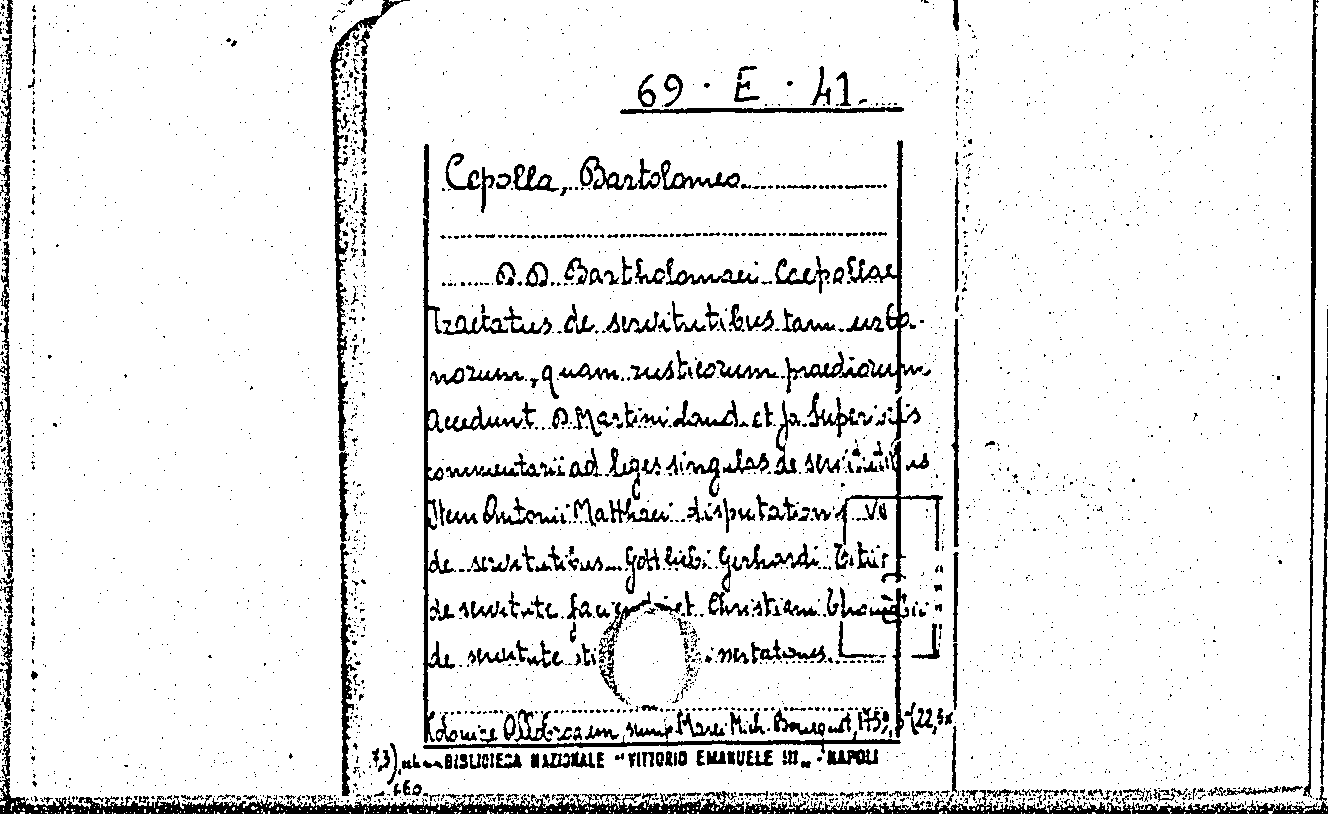 69 · E · 41.
Cepolla, Bartolomeo
D.D. Bartholomaei Caepollae
Tractatus de servitutibus tam urba-
norum, quam rusticorum praediorum
Accedunt D. Martini Laud. et Jo. Superioris
commentarii ad leges singulas de servitutibus
Item Antonii Matthaei disputationes VII
de servitutibus Gottliebi Gerhardi Titii
de servitute faciendi et Christiani Thomasii
de servitute
Coloniae Allobrogum, sump. Marci Mich. Bousquet, 1759,
BIBLIOTECA NAZIONALE "VITTORIO EMANUELE III" - NAPOLI